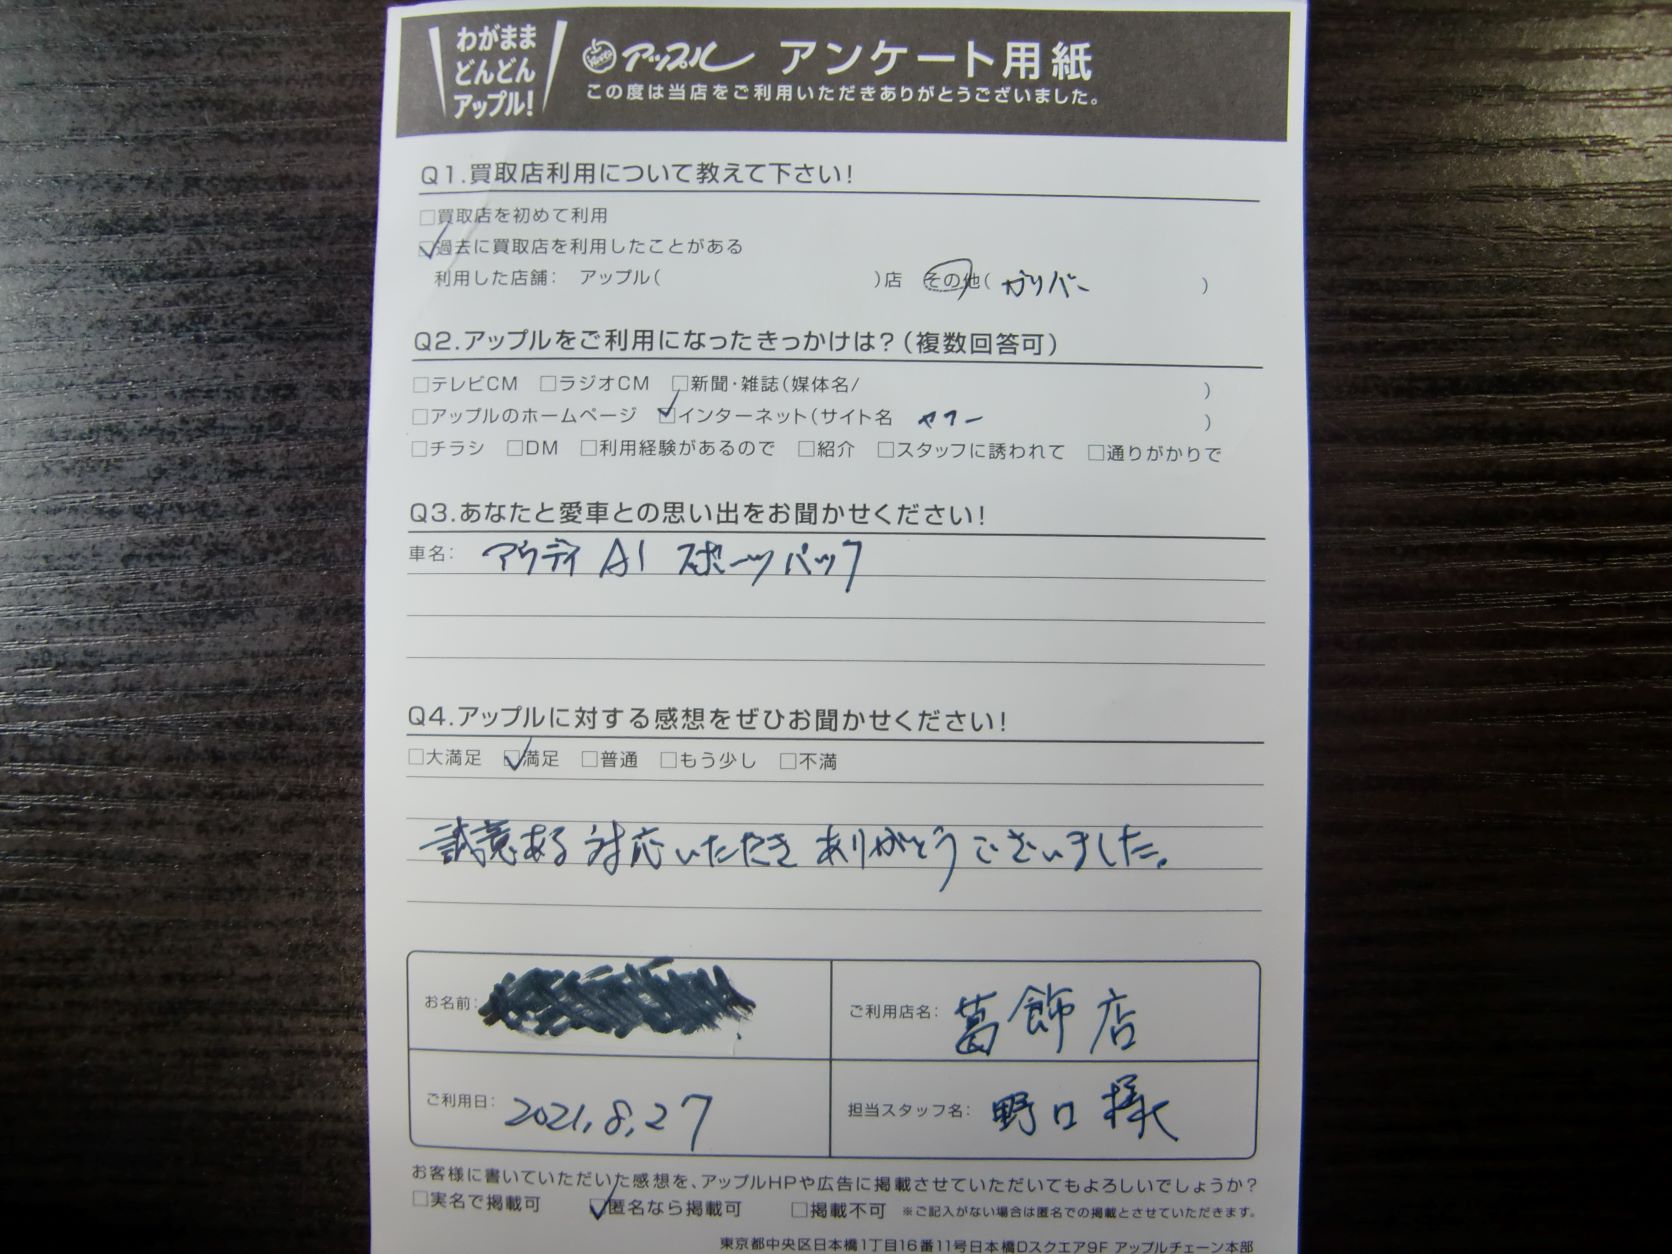 わがまま
どんどん
アップル!
アップル アンケート用紙
この度は当店をご利用いただきありがとうございました。
Q1.買取店利用について教えて下さい!
□買取店を初めて利用
☑過去に買取店を利用したことがある
利用した店舗: アップル( )店 その他( ガリバー )
Q2.アップルをご利用になったきっかけは?(複数回答可)
□テレビCM □ラジオCM □新聞・雑誌(媒体名/ )
□アップルのホームページ ☑インターネット(サイト名 ヤフー )
□チラシ □DM □利用経験があるので □紹介 □スタッフに誘われて □通りがかりで
Q3.あなたと愛車との思い出をお聞かせください!
車名: アウディ A1 スポーツバック
Q4.アップルに対する感想をぜひお聞かせください!
□大満足 ☑満足 □普通 □もう少し □不満
誠意ある対応いただき ありがとうございました。
お名前:
ご利用店名: 葛飾店
ご利用日: 2021,8,27
担当スタッフ名: 野口様
お客様に書いていただいた感想を、アップルHPや広告に掲載させていただいてもよろしいでしょうか?
□実名で掲載可 ☑匿名なら掲載可 □掲載不可 ※ご記入がない場合は匿名での掲載とさせていただきます。
東京都中央区日本橋1丁目16番11号日本橋Dスクエア9F アップルチェーン本部